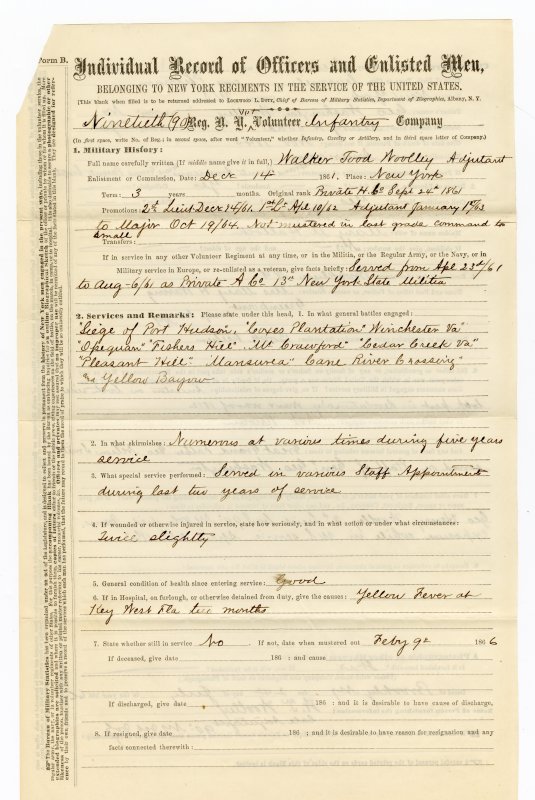 Form B.
Individual Record of Officers and Enlisted Men,
BELONGING TO NEW YORK REGIMENTS IN THE SERVICE OF THE UNITED STATES.
(This blank when filled is to be returned addressed to LOCKWOOD L. DOTY, Chief of Bureau of Military Statistics, Department of Biographies, Albany, N. Y.
Ninetieth 90 Reg. N. Y. Vet Volunteer Infantry Company
(In first space, write No. of Reg.; in second space, after word "Volunteer," whether Infantry, Cavalry or Artillery, and in third space letter of Company.)
1. Military History:
Full name carefully written, (If middle name give it in full,) Walker Tood Woolley Adjutant
Enlistment or Commission, Date: Decr 14 1861. Place: New York
Term: 3 years months. Original rank Private H. Co Sept 24th 1861
Promotions: 2nd Lieut Decr 14/61. 1st Lt Apl 10/62 Adjutant January 1st/63
to Major Oct 19/64. Not mustered in last grade command to
small
Transfers:
If in service in any other Volunteer Regiment at any time, or in the Militia, or the Regular Army, or the Navy, or in
Military service in Europe, or re-enlisted as a veteran, give facts briefly: Served from Apl 23d/61
to Aug 6/61 as Private A Co 13th New York State Militia
2. Services and Remarks: Please state under this head, 1. In what general battles engaged:
"Siege of Port Hudson, "Coxes Plantation" Winchester Va"
"Opequan" "Fishers Hill" "Mt Crawford" "Cedar Creek Va"
"Pleasant Hill" Mansurea" Cane River Crossing"
and Yellow Bayou
2. In what skirmishes: Numerous at various times during five years
service
3. What special service performed: Served in various Staff Appointment
during last two years of service
4. If wounded or otherwise injured in service, state how seriously, and in what action or under what circumstances:
Twice slightly
5. General condition of health since entering service: Good
6. If in Hospital, on furlough, or otherwise detained from duty, give the causes: Yellow Fever at
Key West Fla two months
7. State whether still in service No If not, date when mustered out Feby 9th 1866
If deceased, give date 186 : and cause
If discharged, give date 186 : and it is desirable to have cause of discharge
8. If resigned, give date 186 : and it is desirable to have reason for resignation and any
facts connected therewith: